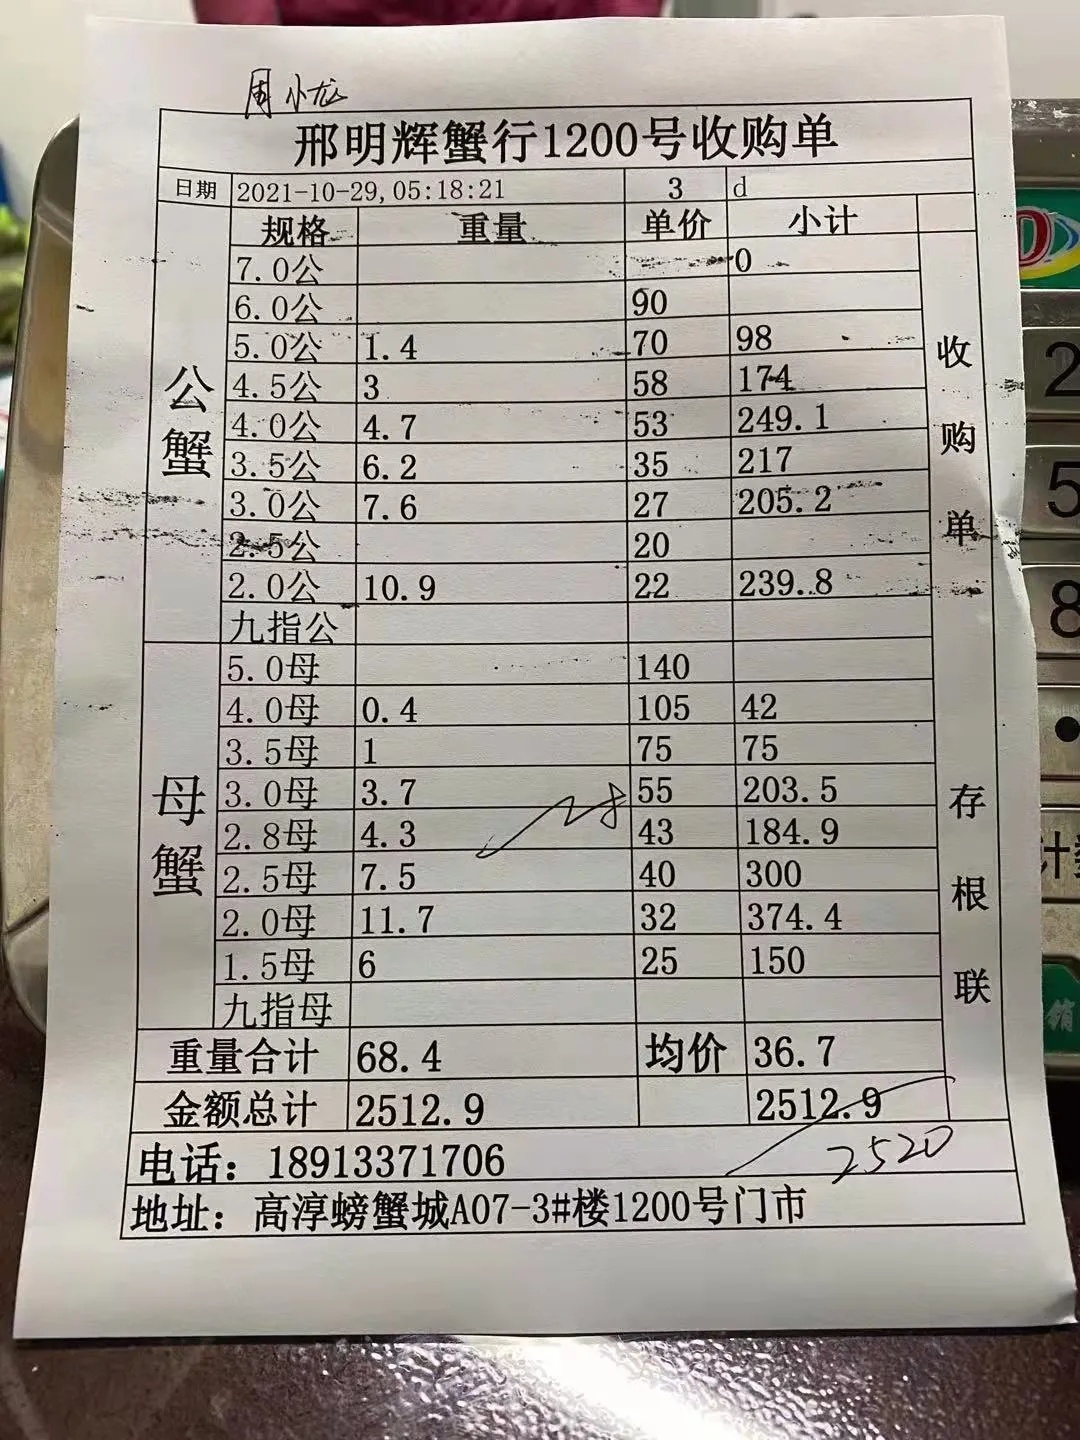 周小龙
邢明辉蟹行1200号收购单
日期 2021-10-29,05:18:21 3 d
规格 重量 单价 小计
公蟹
7.0公 0
6.0公 90
5.0公 1.4 70 98
4.5公 3 58 174
4.0公 4.7 53 249.1
3.5公 6.2 35 217
3.0公 7.6 27 205.2
2.5公 20
2.0公 10.9 22 239.8
九指公
母蟹
5.0母 140
4.0母 0.4 105 42
3.5母 1 75 75
3.0母 3.7 55 203.5
2.8母 4.3 43 184.9
2.5母 7.5 40 300
2.0母 11.7 32 374.4
1.5母 6 25 150
九指母
收购单 存根联
重量合计 68.4 均价 36.7
金额总计 2512.9 2512.9
2520
电话：18913371706
地址：高淳螃蟹城A07-3#楼1200号门市
2
5
8
计
销